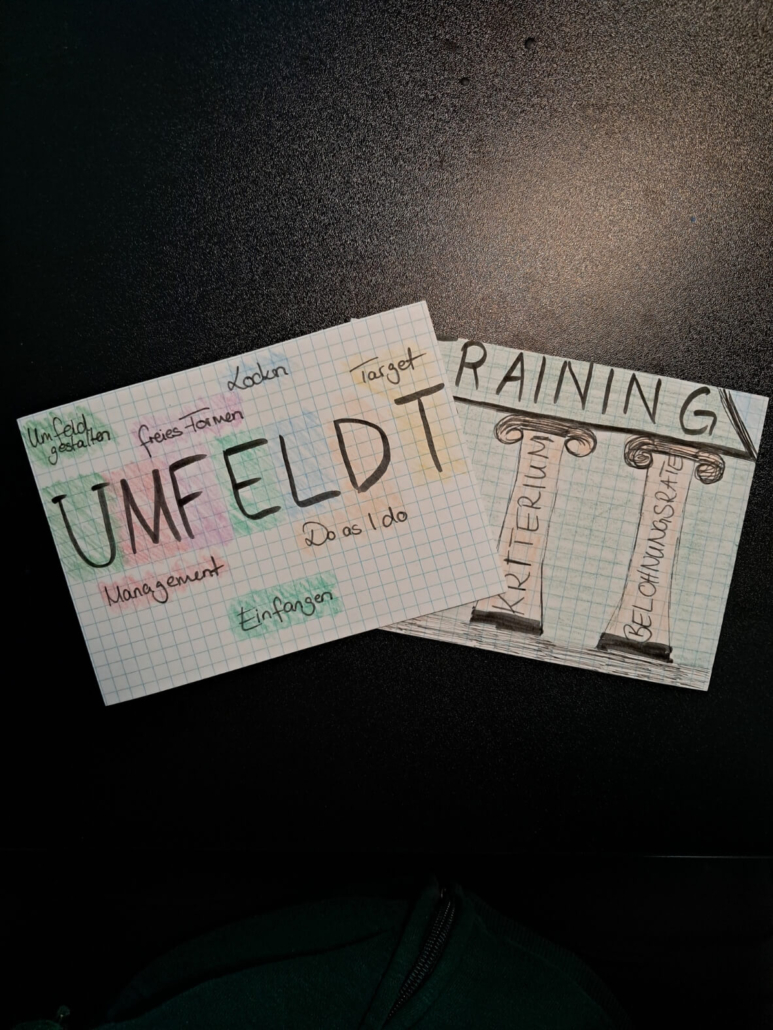 Locken
Target
Umfeld
gestalten
freies Formen
UMFELDT
Do as I do
Management
Einfangen
RAINING
KRITERIUM
BELOHNUNGSRATE